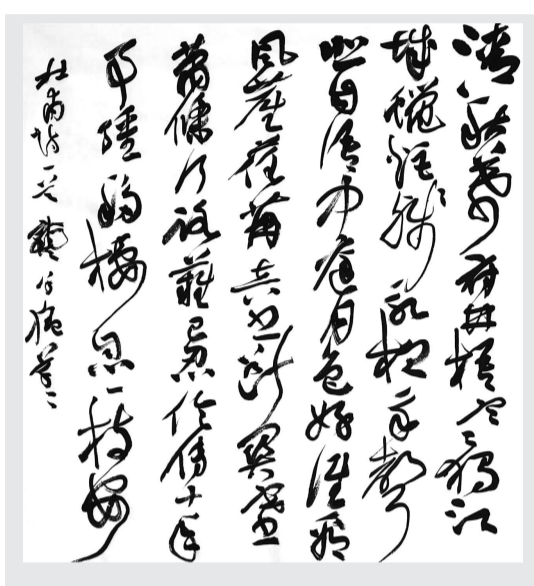 清秋幕府井梧寒獨江
城蠟炬殘永夜角聲
悲自語中天月色好誰看
風塵荏苒音書絕關塞
蕭條行路難已忍伶俜十年
事強移棲息一枝安
杜甫詩一首